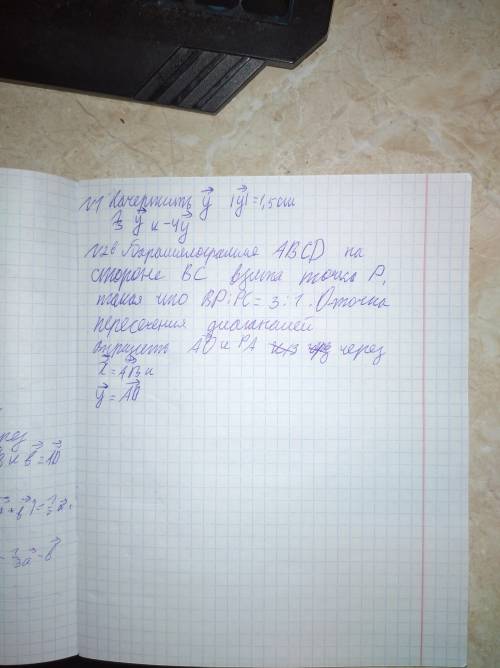 №1 Начертить y⃗ |y⃗|=1,5см
y⃗ и -4y⃗
№2 В Параллелограмме ABCD на
стороне BC взята точка P,
такая что BP:PC=3:1; O точка
пересечения диагоналей
выразить AO и PA через
x⃗=AB⃗ и
y⃗=AD⃗
рез
и b⃗=